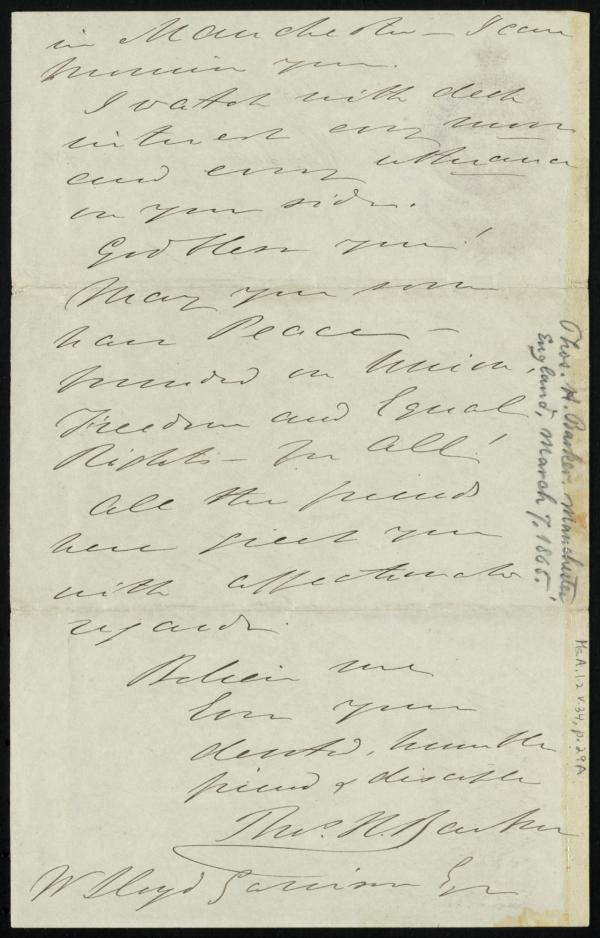 in Manchester – I can
promise you.
I watch with deep
interest every move
and every utterance
on your side.
God bless you!
May you soon
have Peace –
founded on Union,
Freedom and Equal
Rights – for All!
All the friends
here greet you
with affectionate
regards.
Believe me
Ever your
devoted, humble
friend & disciple
Thos. H. Barker
W Lloyd Garrison Esqr
Thos. H. Barker. Manchester
England, March 7, 1865.
Ms.A.1.2 v.34, p.29A